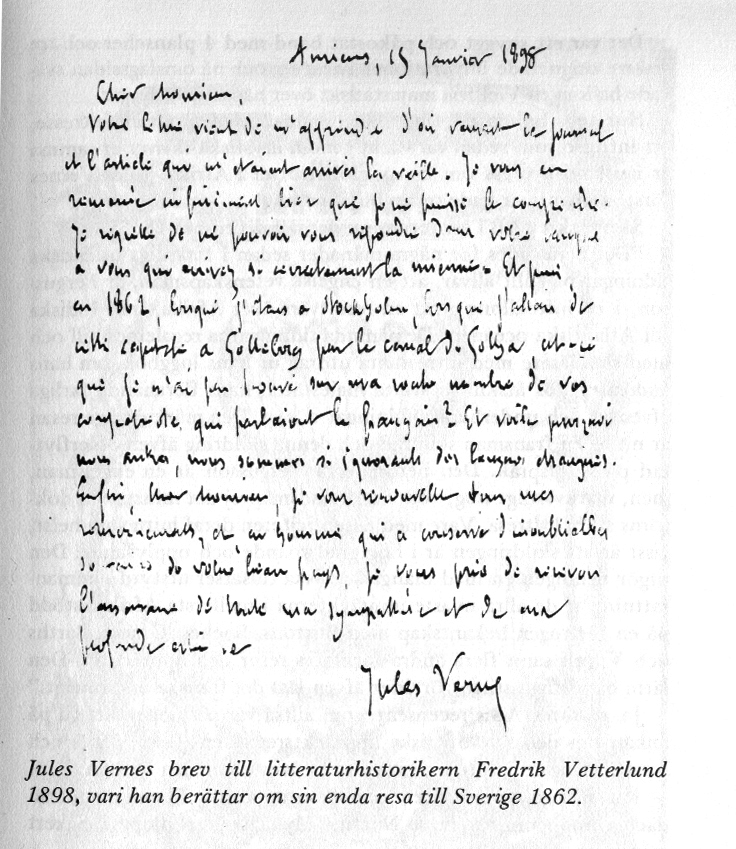 Amiens, 15 Janvier 1898
Cher monsieur,
Votre lettre vient de m'apprendre d'où venait le journal
et l'article qui m'étaient arrivés la veille. Je vous en
remercie infiniment, bien que je ne puisse le comprendre.
Je regrette de ne pouvoir vous répondre dans votre langue
à vous que écrivez si correctement la mienne. Et puis
en 1862, lorsque j'étais à Stockholm, lorsque j'allais de
cette capitale à Gotteborg par le canal de Gotha, est-ce
que je n'ai pas trouvé sur ma route nombre de vos
compatriotes qui parlaient le français? Et voilà pourquoi
nous autres, nous sommes si ignorants des langues étrangères.
Enfin, cher monsieur, je vous renouvelle tous mes
remerciements, et en homme qui a conservé d'inoubliables
souvenirs de votre beau pays, je vous prie de recevoir
l'assurance de toute ma sympathie et de ma
profonde
Jules Verne
Jules Vernes brev till litteraturhistorikern Fredrik Vetterlund
1898, vari han berättar om sin enda resa till Sverige 1862.